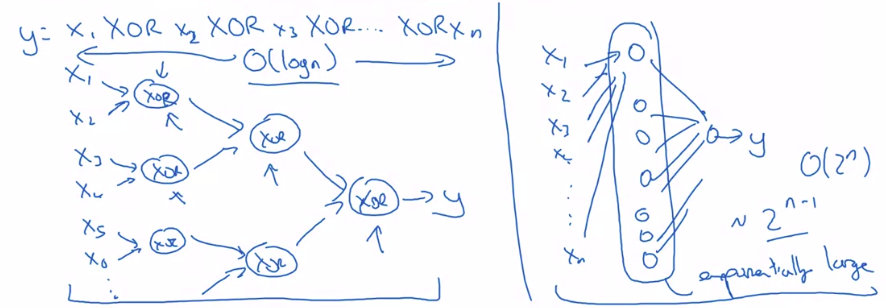 y= x₁ XOR x₂ XOR x₃ XOR.... XOR xₙ
O(logn)
x₁
x₂
XOR
x₃
x₄
XOR
x₅
x₆
XOR
⋮
XOR
XOR
XOR
y
x₁
x₂
x₃
x₄
⋮
xₙ
y
O(2ⁿ)
~ 2ⁿ⁻¹
exponentially large